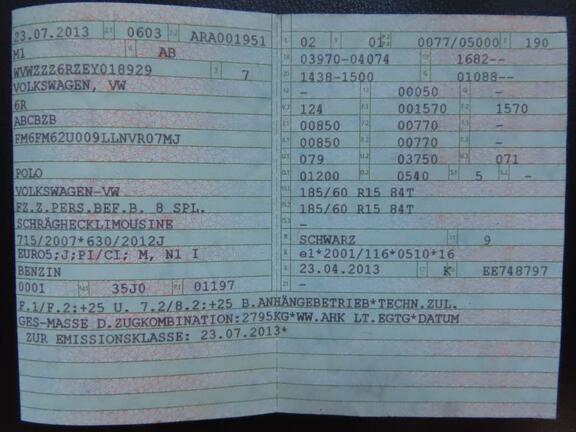 23.07.2013 0603 ARA001951
M1 AB
WVWZZZ6RZEY018929 7
VOLKSWAGEN, VW
6R
ABCBZB
FM6FM62U009LLNVR07MJ
POLO
VOLKSWAGEN-VW
FZ.Z.PERS.BEF.B. 8 SPL.
SCHRÄGHECKLIMOUSINE
715/2007*630/2012J
EURO5;J;PI/CI; M, N1 I
BENZIN
0001 35J0 01197
02 01 0077/05000 190
03970-04074 1682--
1438-1500 01088--
- 00050 -
124 001570 1570
00850 00770 -
00850 00770 -
079 03750 071
01200 0540 5 -
185/60 R15 84T
185/60 R15 84T
-
SCHWARZ 9
e1*2001/116*0510*16
23.04.2013 K EE748797
-
F.1/F.2:+25 U. 7.2/8.2:+25 B.ANHÄNGEBETRIEB*TECHN.ZUL.
GES-MASSE D.ZUGKOMBINATION:2795KG*WW.AHK LT.EGTG*DATUM
ZUR EMISSIONSKLASSE: 23.07.2013*